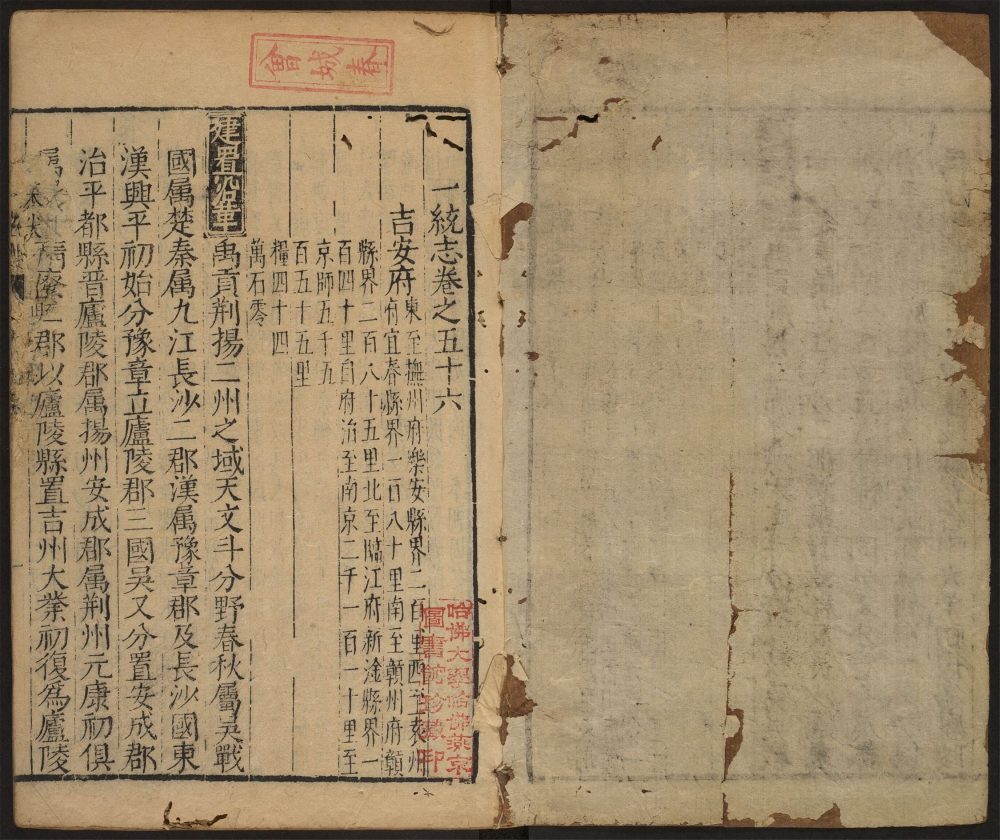 春城會
一統志卷之五十六
吉安府東至撫州府樂安縣界二百里西至袁州
府宜春縣界一百八十里南至贛州府贛
縣界二百八十五里北至臨江府新淦縣界一
百四十里自府治至南京二千一百一十里至
京師五千五
百五十五里
糧四十四
萬石零
建置沿革禹貢荆揚二州之域天文斗分野春秋屬吳戰
國属楚秦属九江長沙二郡漢属豫章郡及長沙國東
漢興平初始分豫章立廬陵郡三國吳又分置安成郡
治平都縣晋廬陵郡属揚州安成郡属荆州元康初俱
属隋廢二郡以廬陵縣置吉州大業初復爲廬陵
哈佛大學哈佛燕京
圖書館珍藏印